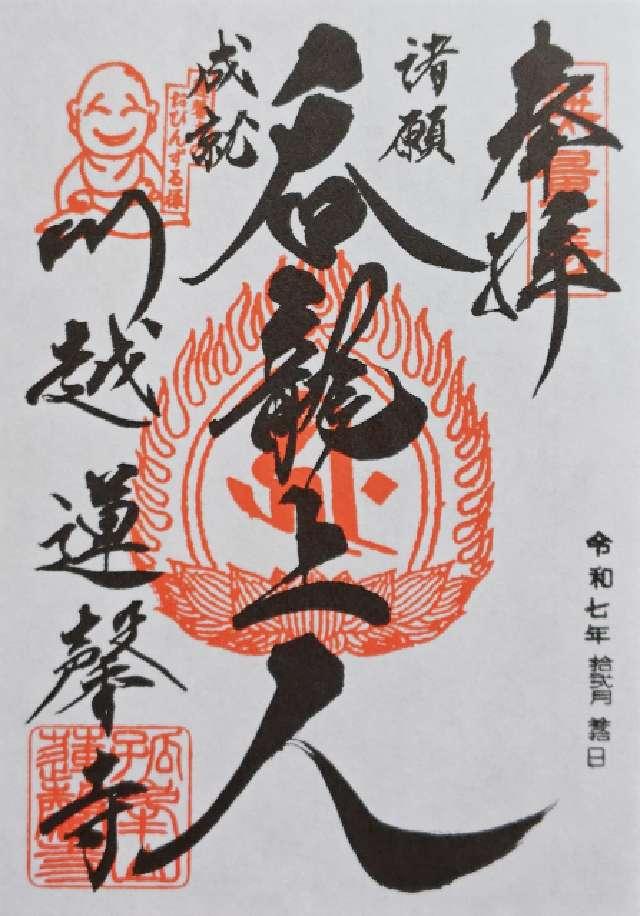 奉拝
諸願
成就
呑龍上人
おびんずる様
川越蓮馨寺
孤峯山
蓮馨寺
令和七年拾弐月 日